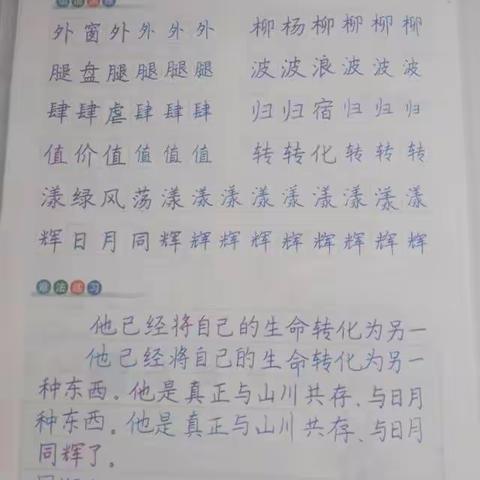 外窗外外外外 柳杨柳柳柳柳
腿盘腿腿腿腿 波波浪波波波
肆肆虐肆肆肆 归归宿归归归
值价值值值值 转转化转转转
漾绿风荡漾漾漾漾漾漾漾漾漾
辉日月同辉辉辉辉辉辉辉辉辉
章法练习
他已经将自己的生命转化为另一
他已经将自己的生命转化为另一
种东西。他是真正与山川共存、与日月
种东西。他是真正与山川共存、与日月
同辉了。